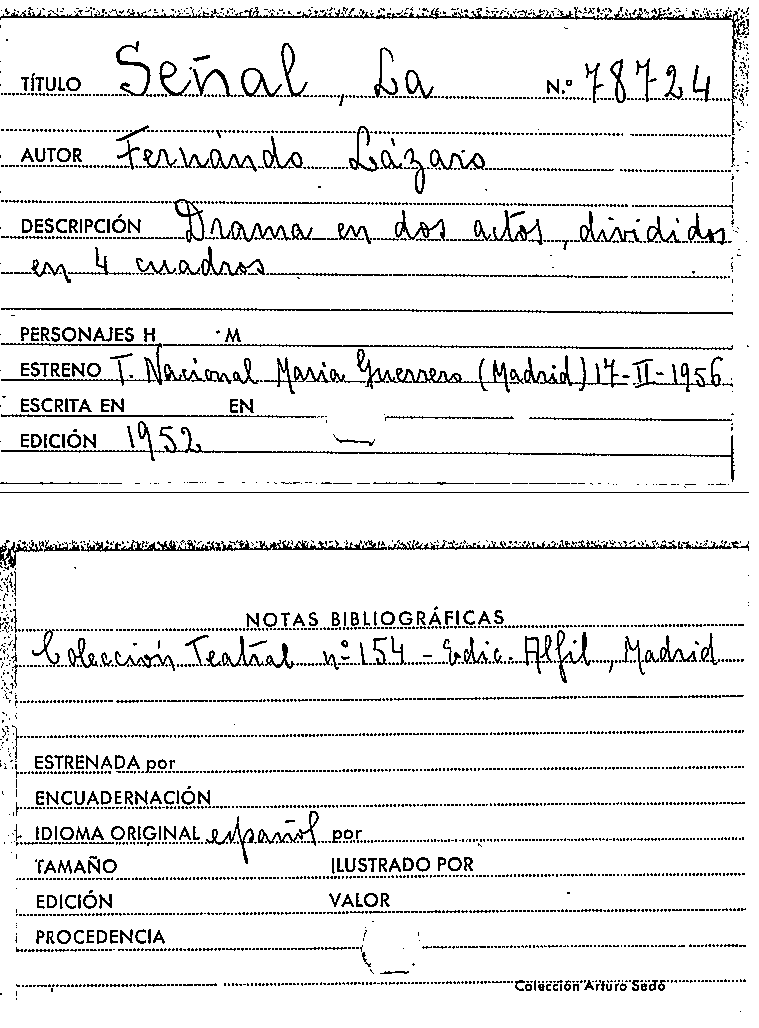 TÍTULO Señal, La N.º 78724
AUTOR Fernándo Lázaro
DESCRIPCIÓN Drama en dos actos, divididos
en 4 cuadros
PERSONAJES H M
ESTRENO T. Nacional Maria Guerrero (Madrid) 17-II-1956
ESCRITA EN EN
EDICIÓN 1952
NOTAS BIBLIOGRÁFICAS
Colección Teatral nº 154 - Edic. Alfil, Madrid
ESTRENADA por
ENCUADERNACIÓN
IDIOMA ORIGINAL español por
TAMAÑO ILUSTRADO POR
EDICIÓN VALOR
PROCEDENCIA
Colección Arturo Sedó